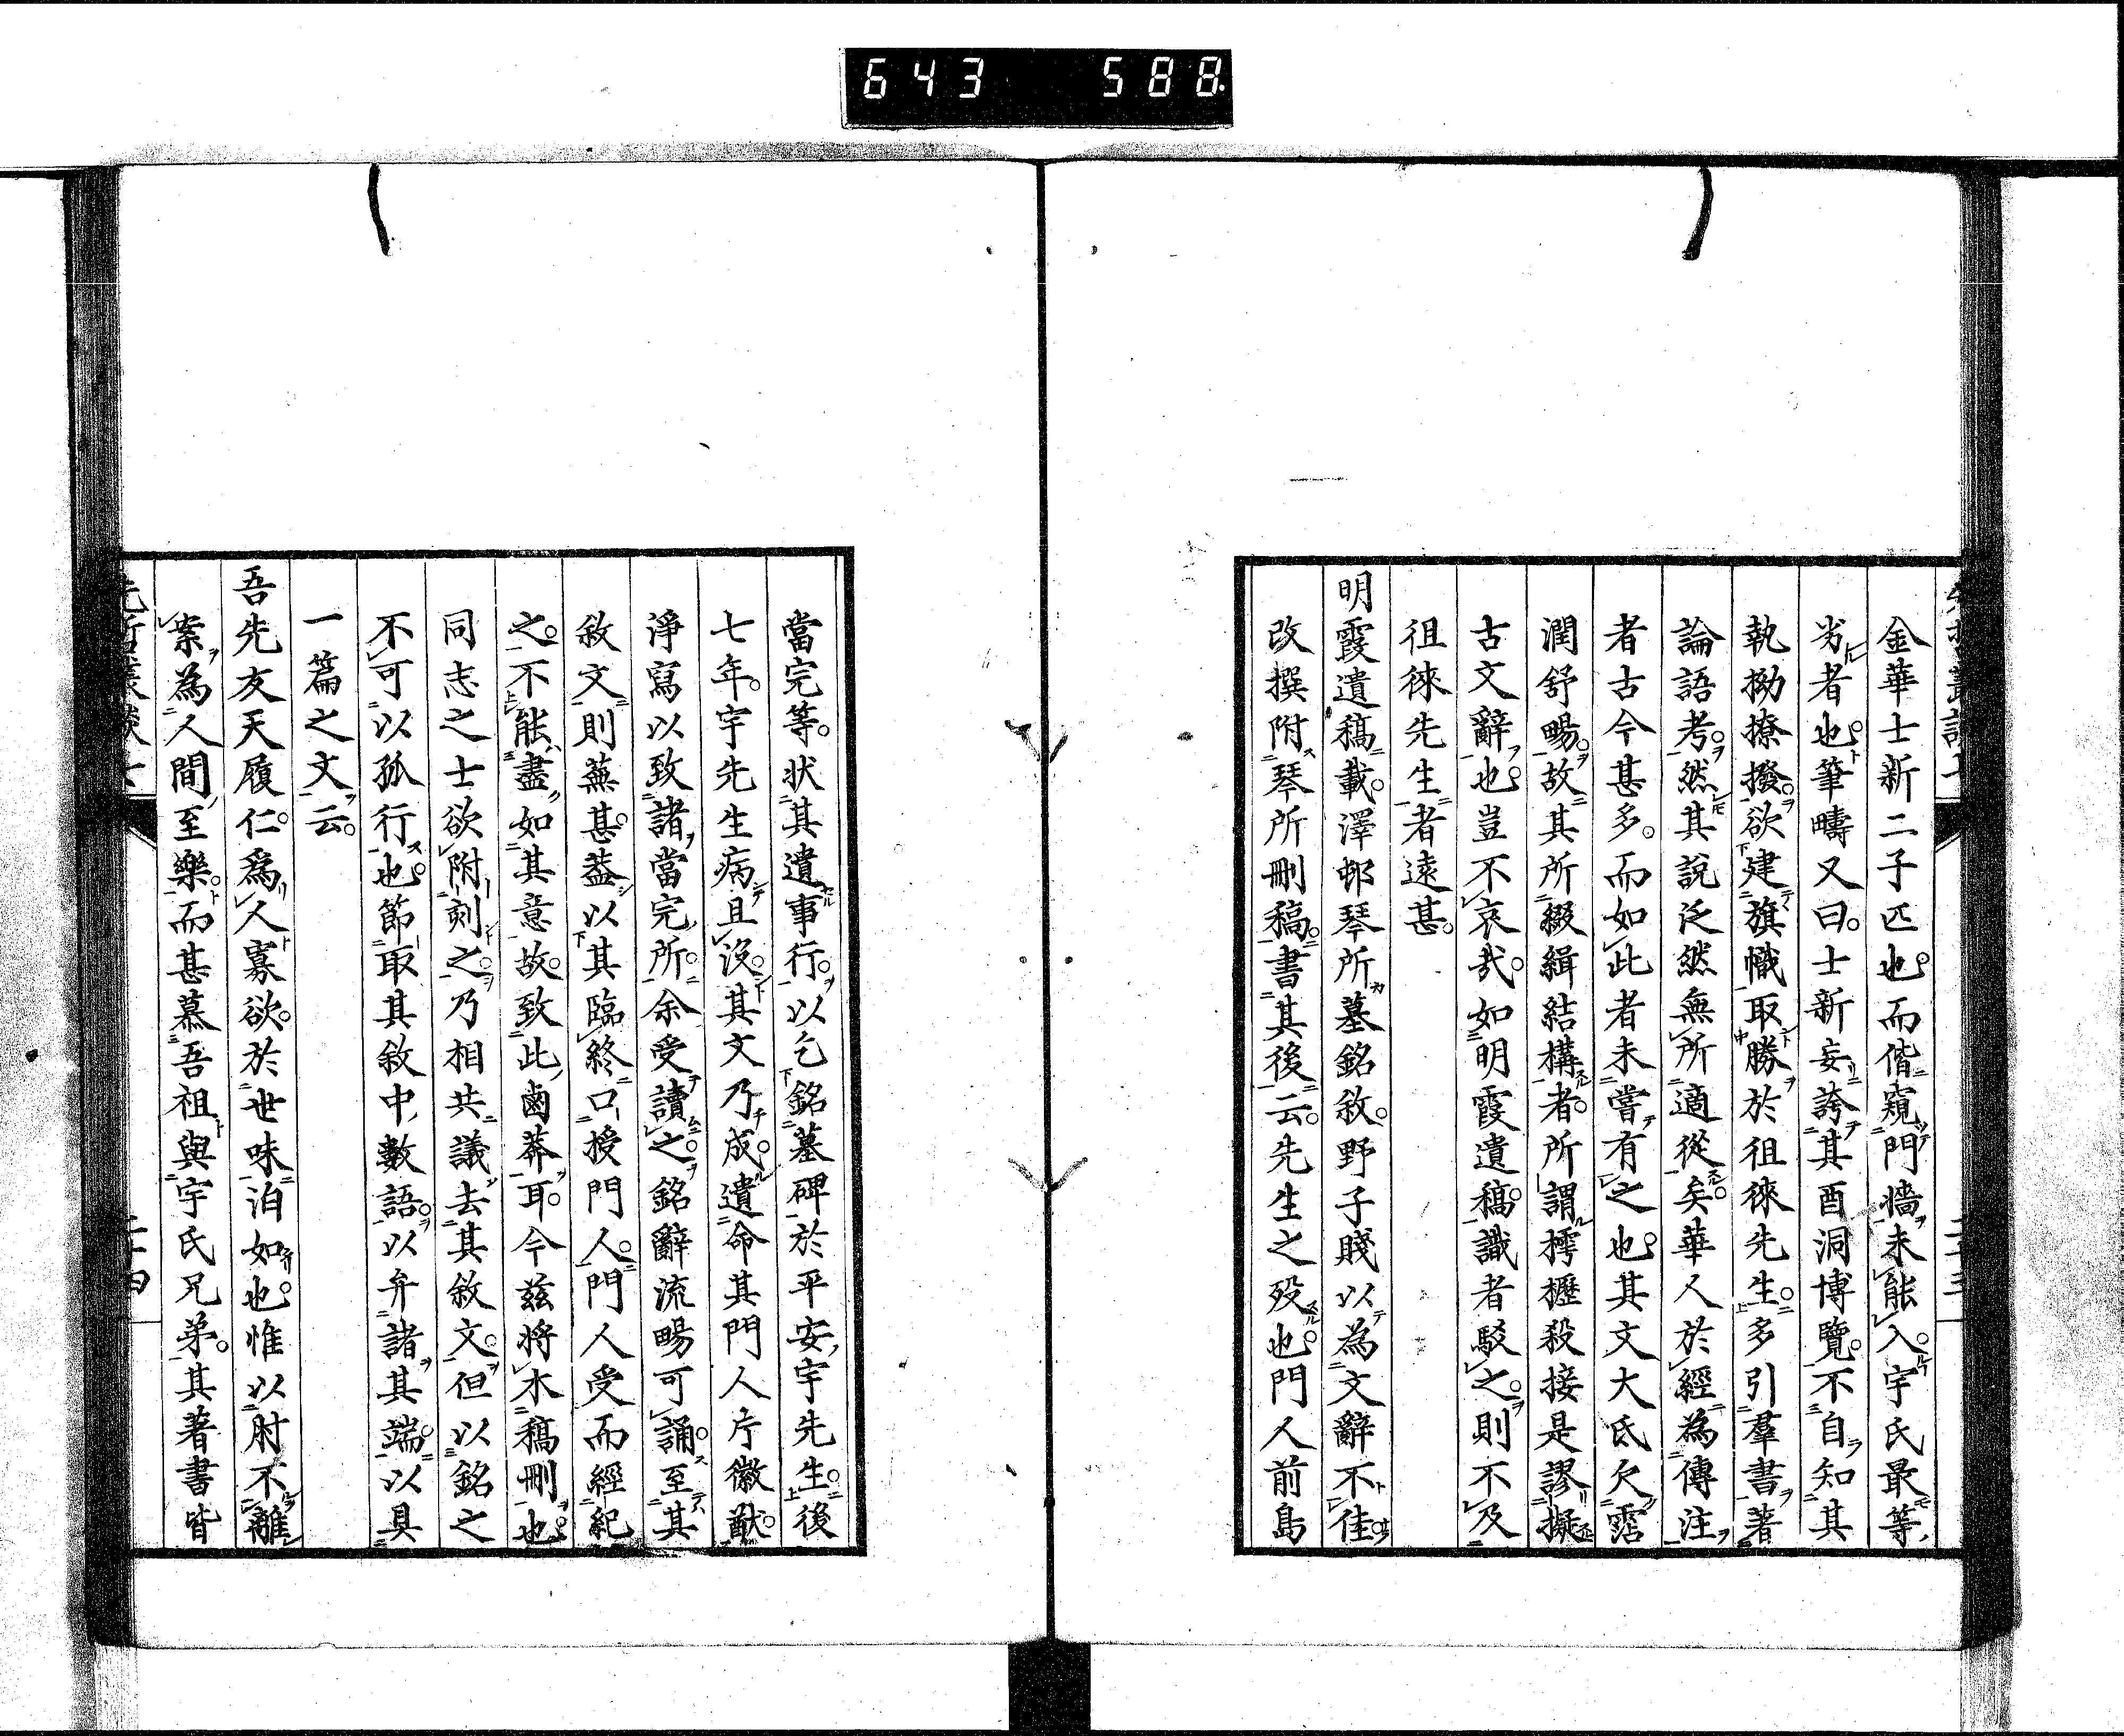 643 588.
金華士新二子匹也。而偕窺門牆未能入。宇氏最等,
劣者也。筆疇又曰。士新妄誇其酉洞博覽。不自知其
執拗撩撥。欲建旗幟取勝於徂徠先生。多引羣書著
論語考。然其說泛然無所適從矣。華人於經為傳注
者古今甚多。而如此者未嘗有之也。其文大氐欠霑
潤舒暢。故其所綴緝結構者。所謂摴櫪殺接是謬擬
古文辭也。豈不哀哉。如明霞遺稿。識者駁之。則不及
徂徠先生者遠甚。
明霞遺稿載。澤邨琴所墓銘敘。野子賤以為文辭不佳。
改撰附琴所刪稿。書其後云。先生之歿也。門人前島
當完等。状其遺事行。以乞銘墓碑於平安,宇先生。後
七年。宇先生病且沒。其文乃成。遺命其門人片徽猷。
淨寫以致諸當完所。余受讀之。銘辭流暢可誦。至其
敘文則蕪甚。蓋以其臨終口授門人。門人受而經紀
之。不能盡如其意。故致此鹵莽耳。今茲將木稿刪也。
同志之士欲附刻之。乃相共議去其敘文。但以銘之
不可以孤行也。節取其敘中數語。以弁諸其端。以具
一篇之文云。
吾先友天履仁。爲人寡欲。於世味泊如也。惟以肘不離
案,為人間至樂。而甚慕吾祖與宇氏兄弟。其著書皆